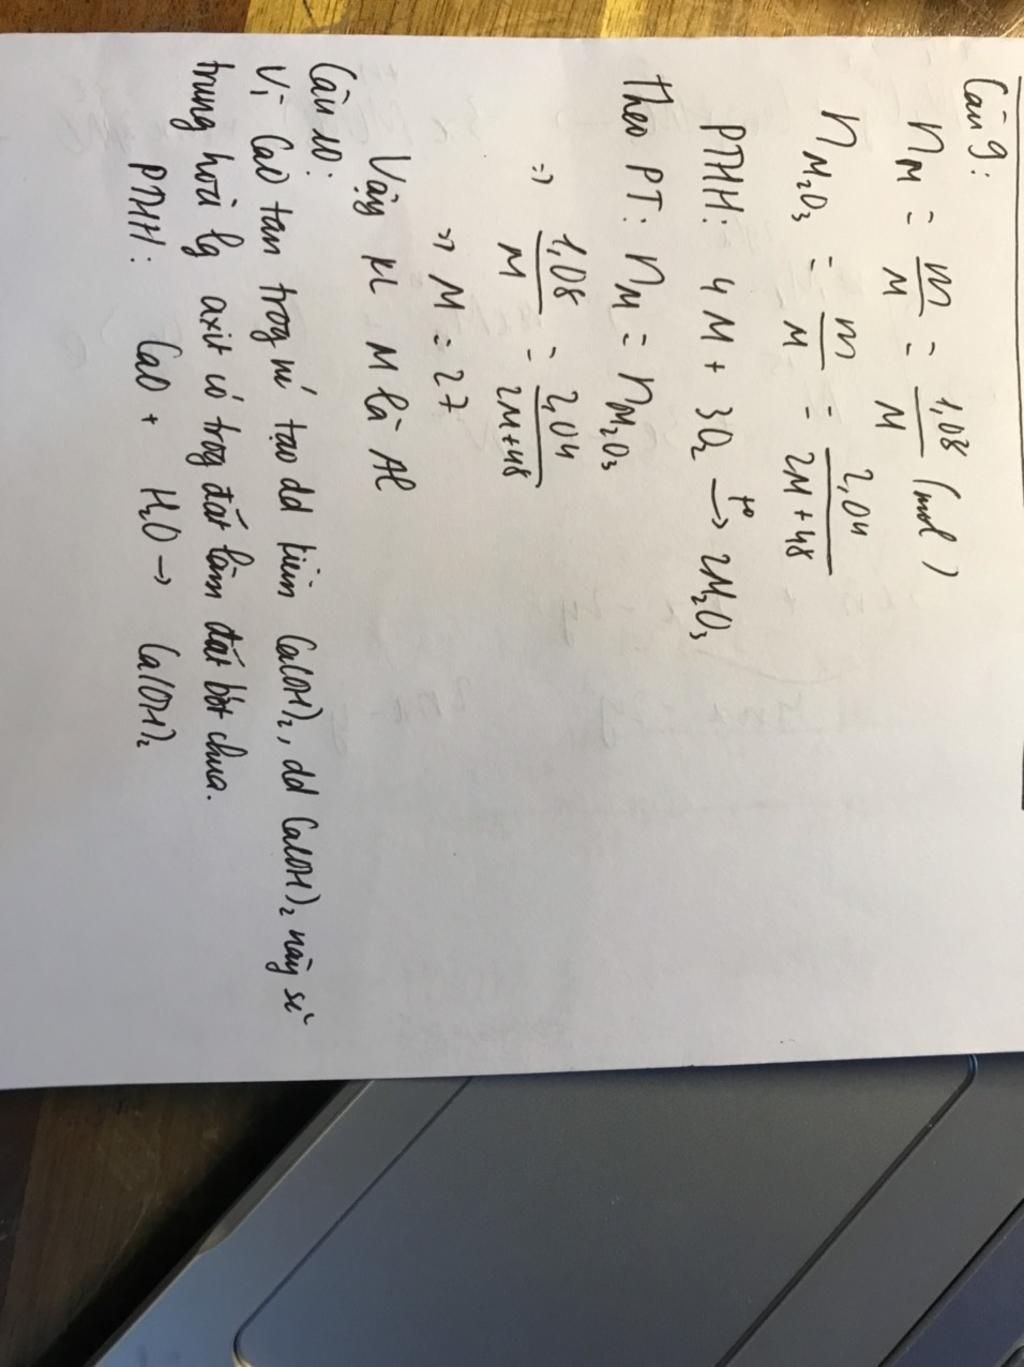 Câu 9:
n_M = m/M = 1,08/M (mol)
n_M₂O₃ = m/M = 2,04/2M+48
PTHH: 4M + 3O₂ →t° 2M₂O₃
Theo PT: n_M = n_M₂O₃
=> 1,08/M = 2,04/2M+48
=> M = 27
Vậy KL M là Al
Câu 10:
Vì CaO tan trog nc tạo dd kiềm Ca(OH)₂, dd Ca(OH)₂ này sẽ
trung hoà lg axit có trog đất làm đất bớt chua.
PTHH: CaO + H₂O → Ca(OH)₂